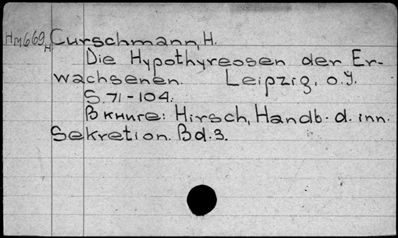 Hm669 Curschmann, H.
H
Die Hypothyreosen der Er-
wachsenen. Leipzig, o.J.
S.71-104.
В книге: Hirsch, Handb. d. inn.
Sekretion. Bd.3.